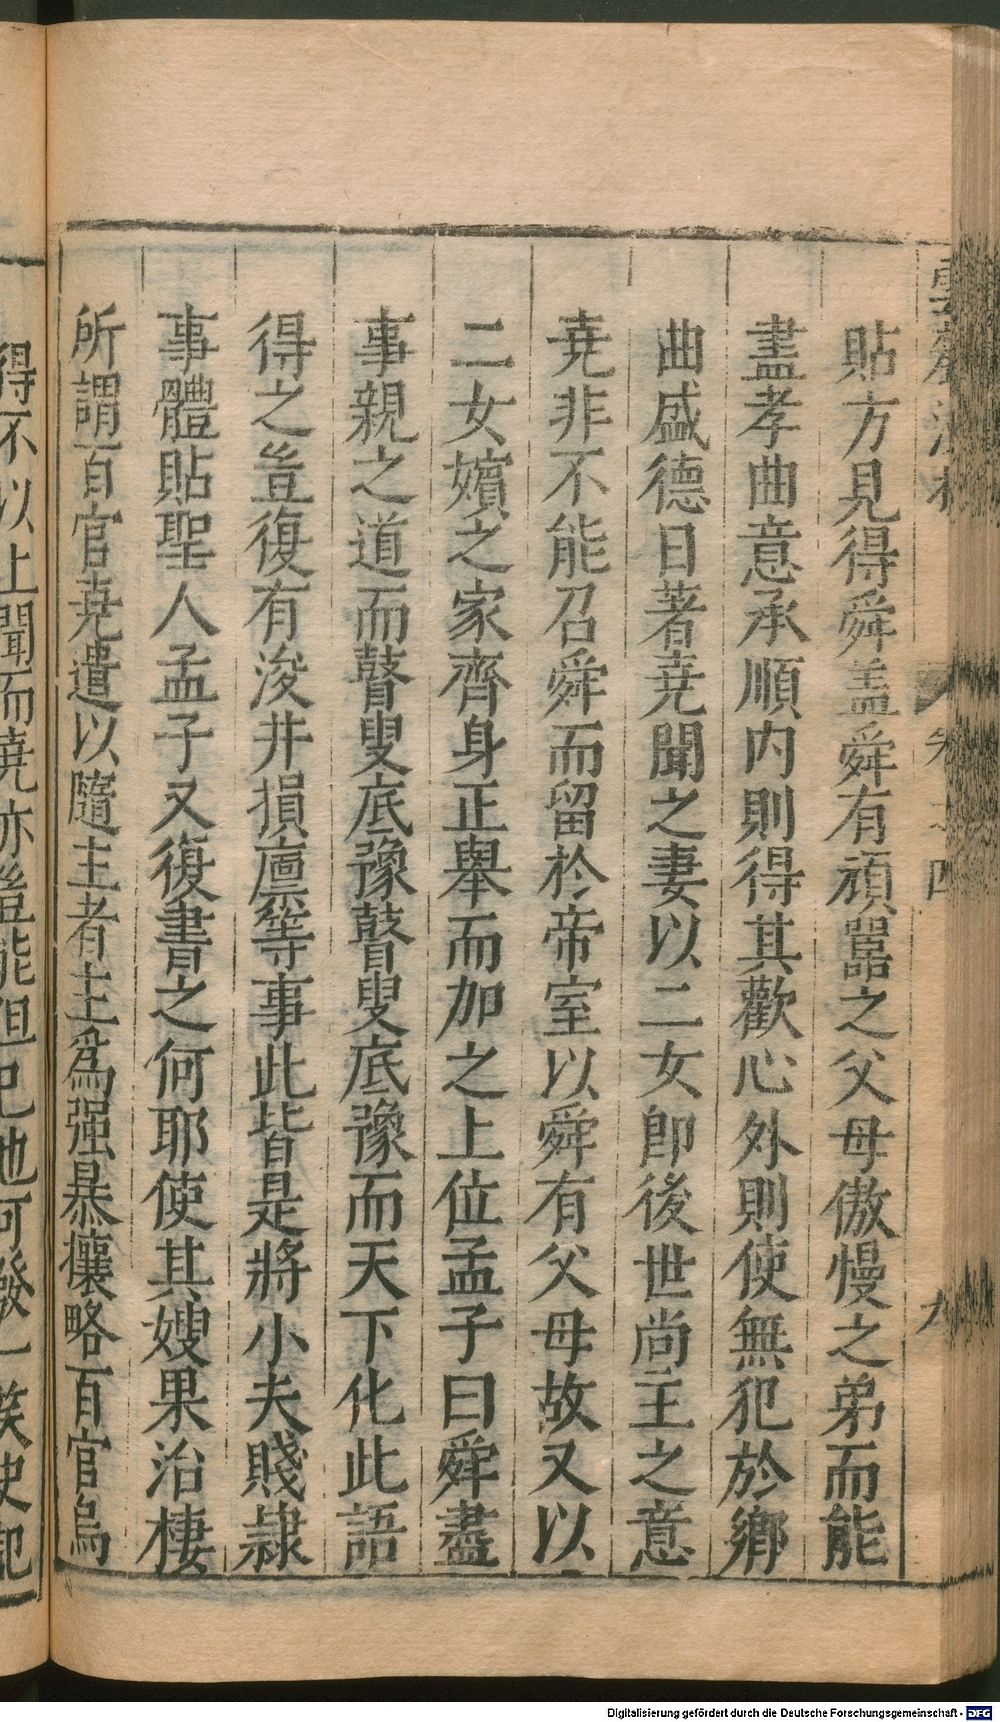 貼方見得舜盖舜有頑嚚之父母傲慢之弟而能
盡孝曲意承順内則得其歡心外則使無犯於鄉
曲盛德日著尭聞之妻以二女即後世尚主之意
尭非不能召舜而留於帝室以舜有父母故又以
二女嬪之家齊身正舉而加之上位孟子曰舜盡
事親之道而瞽叟底豫瞽叟底豫而天下化此語
得之豈復有浚井損廪等事此皆是將小夫賤隷
事體貼聖人孟子又復書之何耶使其嫂果治棲
所謂百官尭遣以隨主者主爲强暴攘略百官烏
得不以上聞而堯亦豈能但已也可發一笑史記
Digitalisierung gefördert durch die Deutsche Forschungsgemeinschaft - DFG